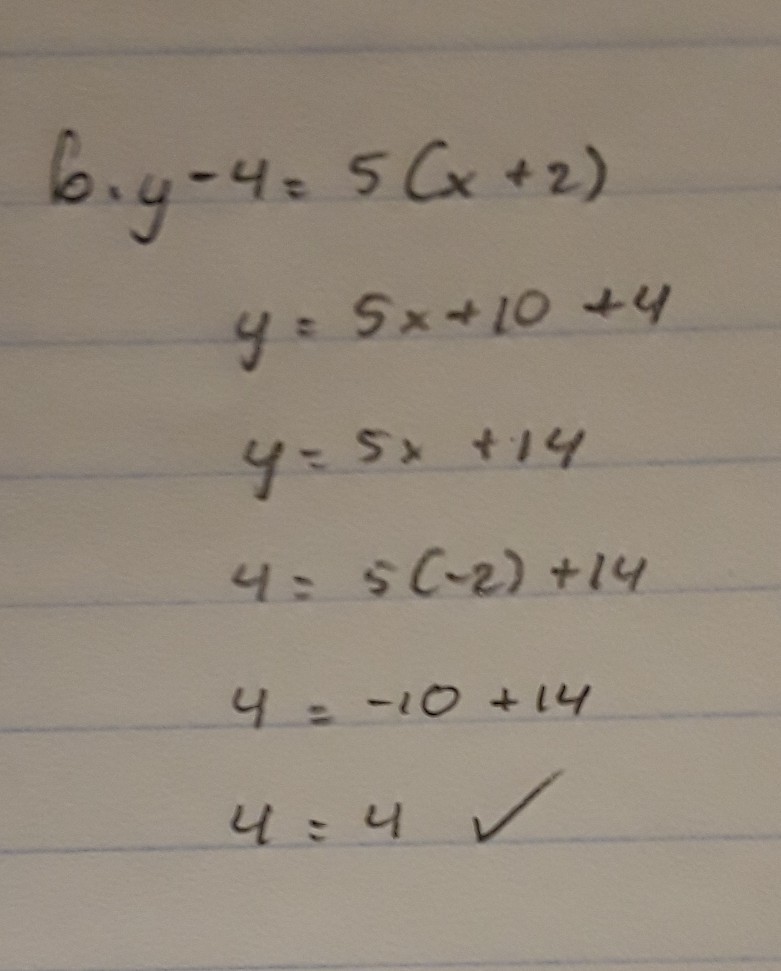 6. y - 4 = 5(x + 2)
y = 5x + 10 + 4
y = 5x + 14
4 = 5(-2) + 14
4 = -10 + 14
4 = 4 ✓